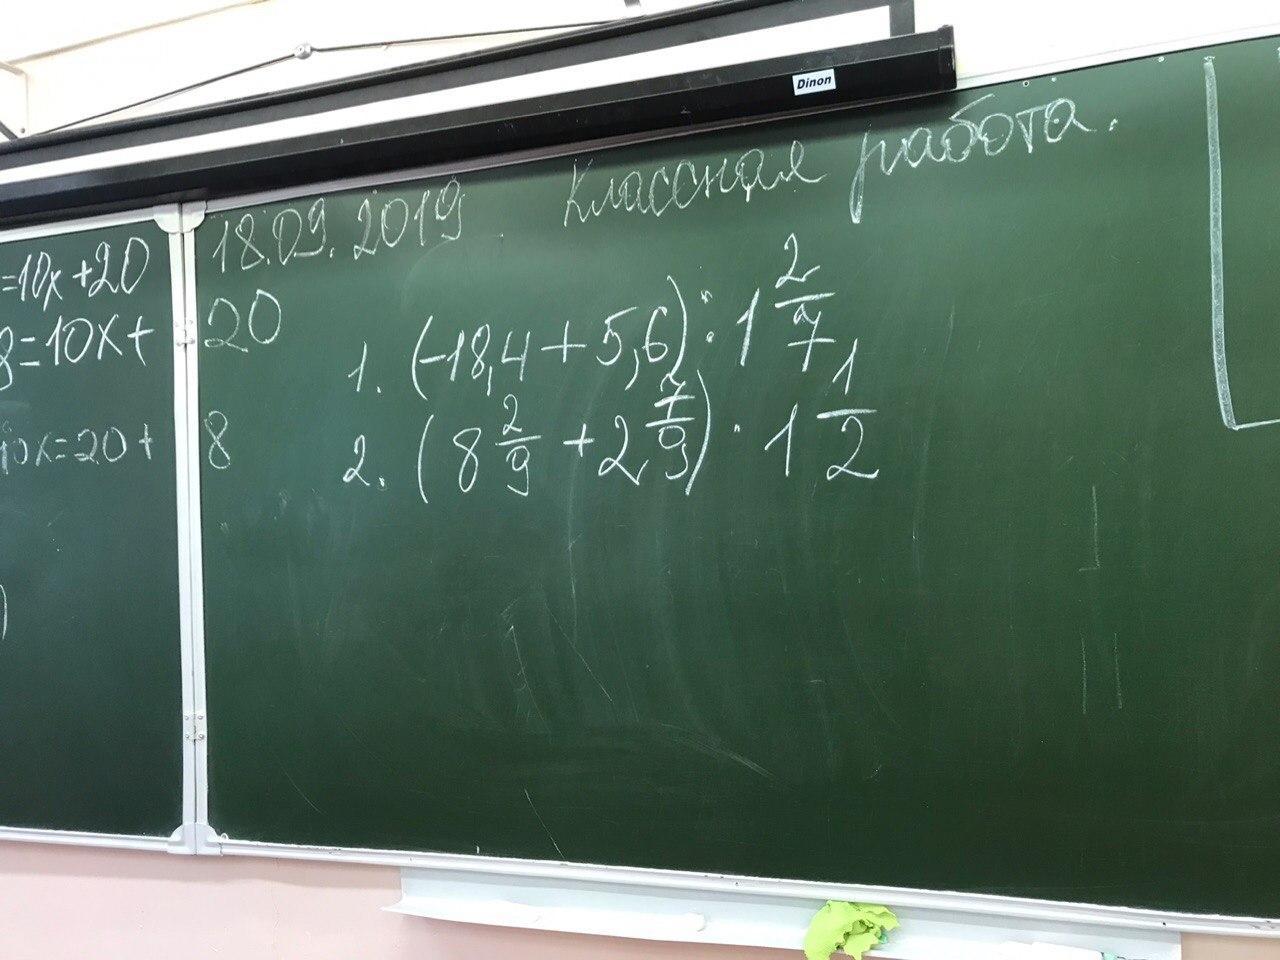 Dinon
18.09.2019 Классная работа.
=10x+20
8=10x+20
1. (-18,4+5,6):1 2/7
10x=20+8
2. (8 2/9+2 7/9)·1 1/2